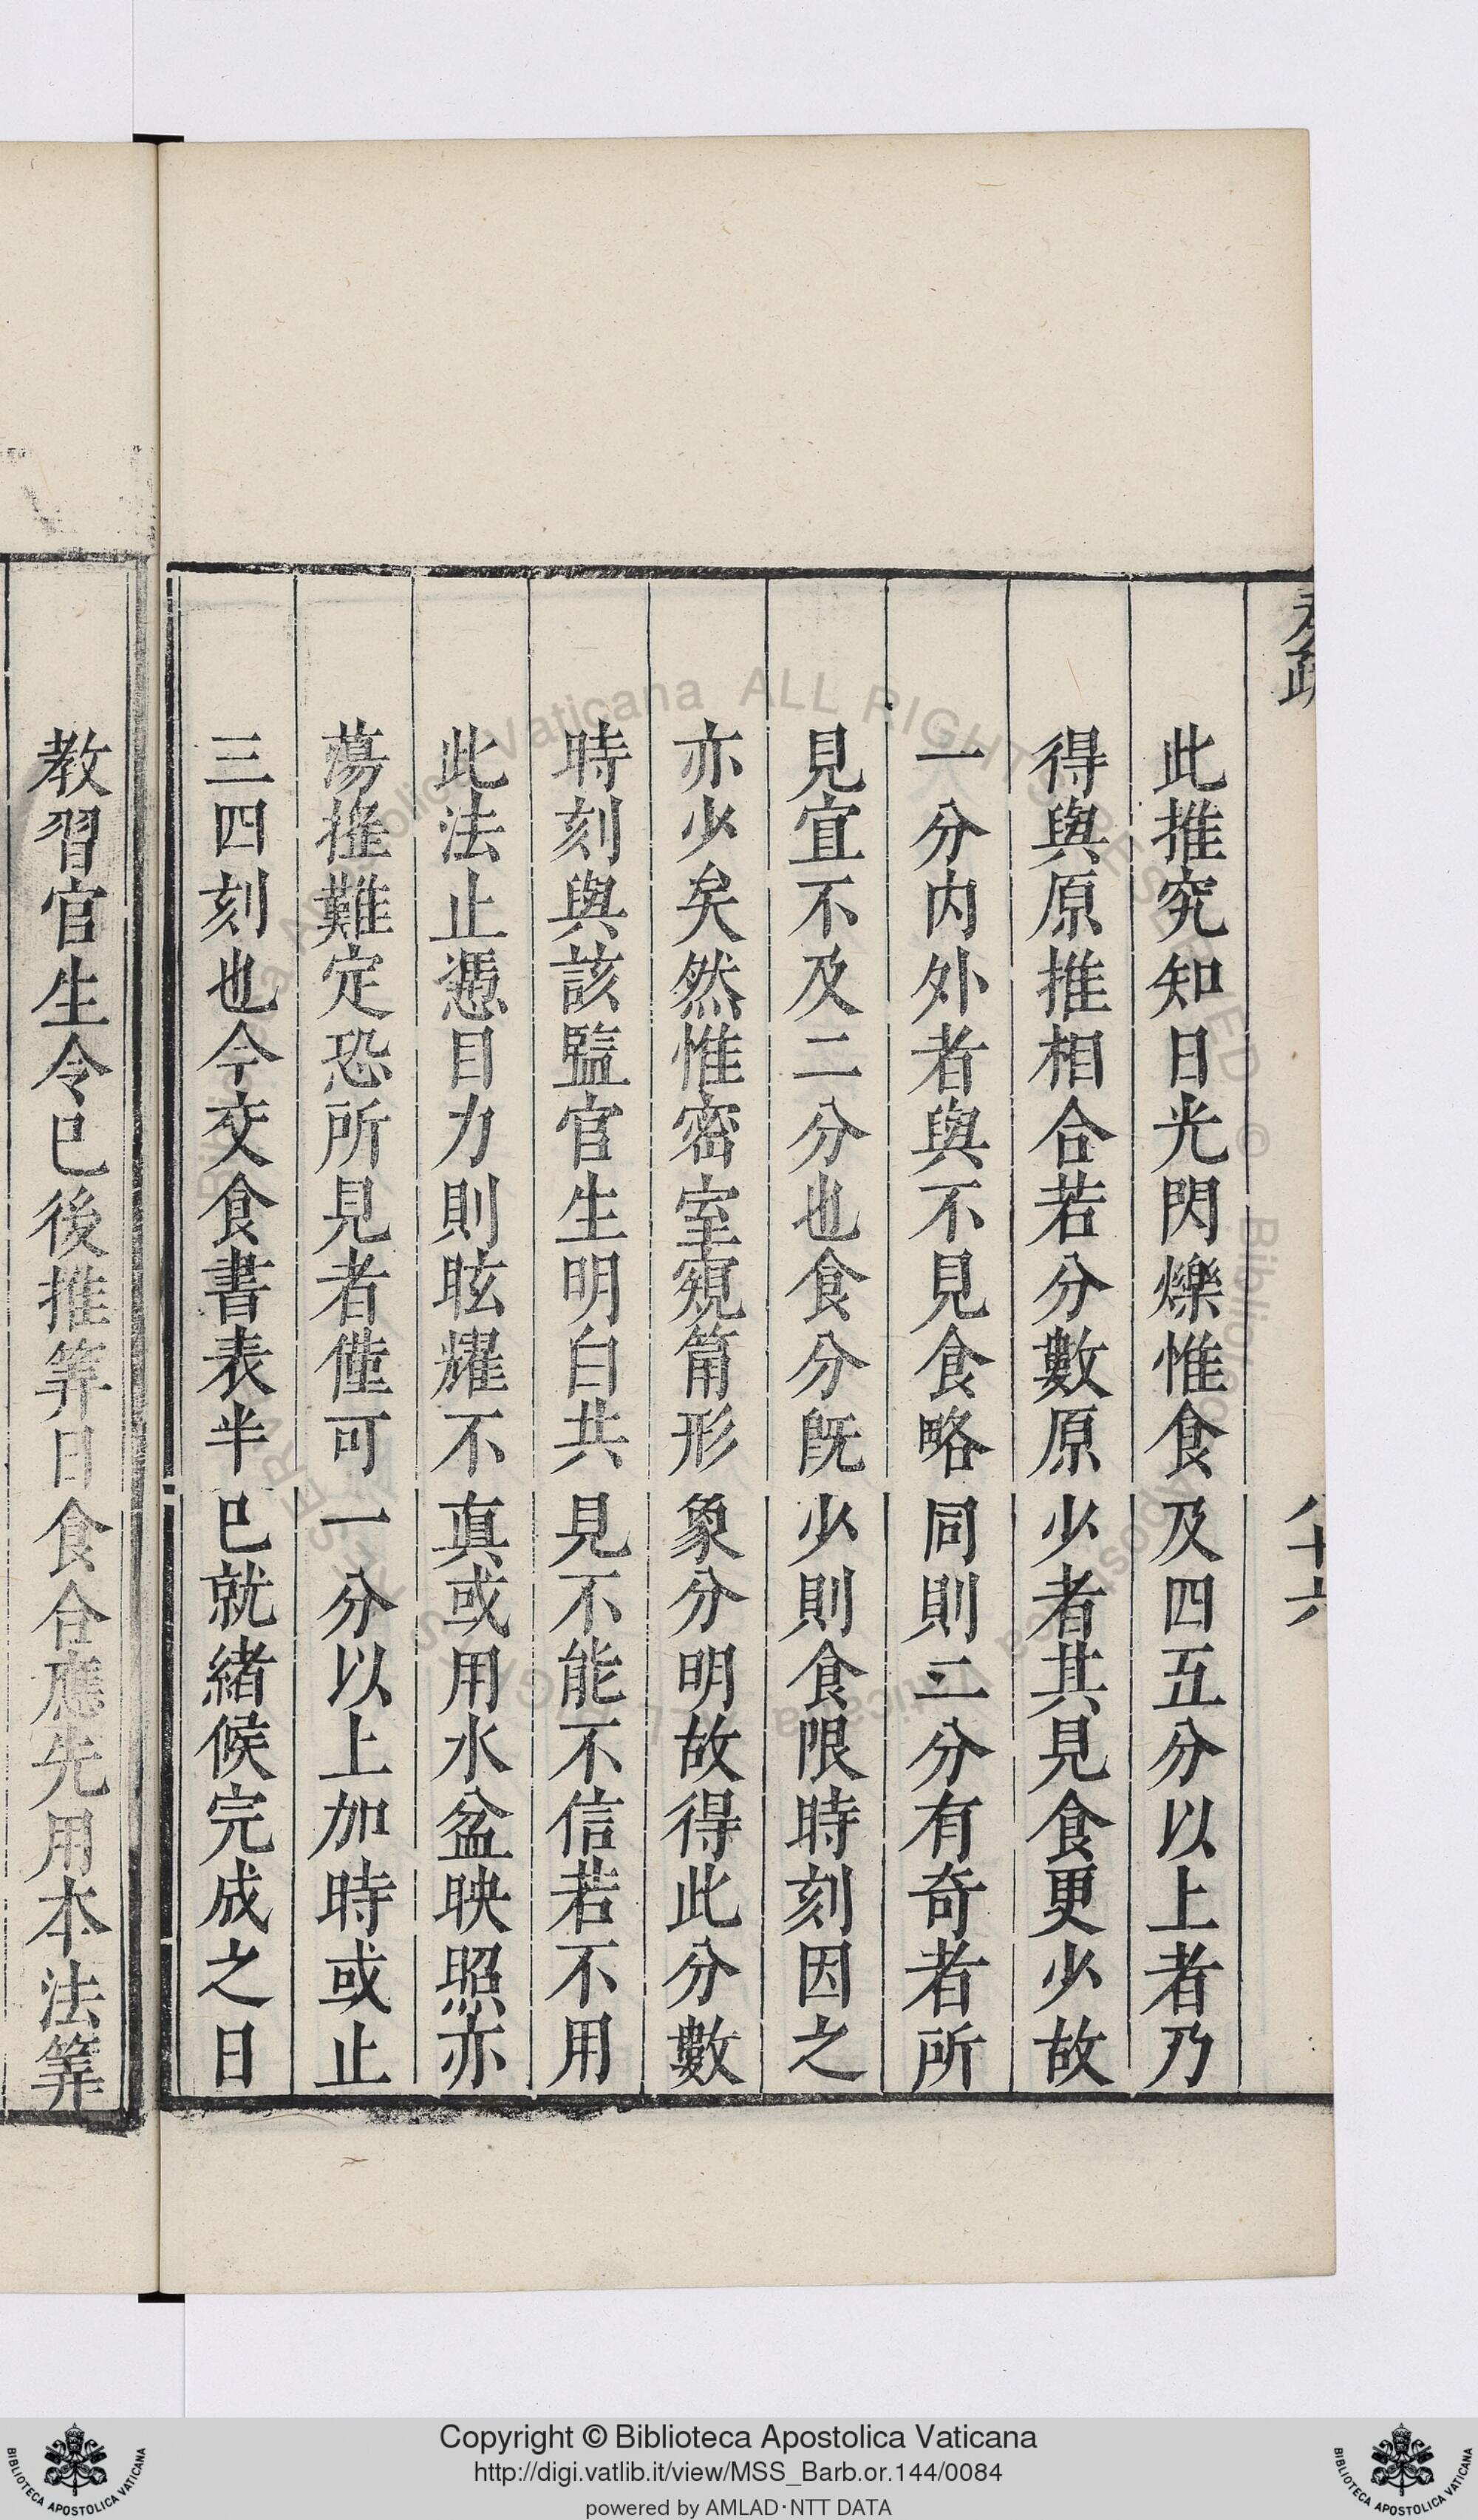 奏疏
八十六
此推究知日光閃爍惟食及四五分以上者乃
得與原推相合若分數原少者其見食更少故
一分内外者與不見食略同則二分有奇者所
見宜不及二分也食分旣少則食限時刻因之
亦少矣然惟密室窺筩形象分明故得此分數
時刻與該監官生明白共見不能不信若不用
此法止憑目力則眩耀不真或用水盆映照亦
蕩搖難定恐所見者僅可一分以上加時或止
三四刻也今交食書表半已就緒候完成之日
教習官生令已後推筭日食合應先用本法筭
Copyright © Biblioteca Apostolica Vaticana
http://digi.vatlib.it/view/MSS_Barb.or.144/0084
powered by AMLAD·NTT DATA
BIBLIOTECA APOSTOLICA VATICANA
BIBLIOTECA APOSTOLICA VATICANA